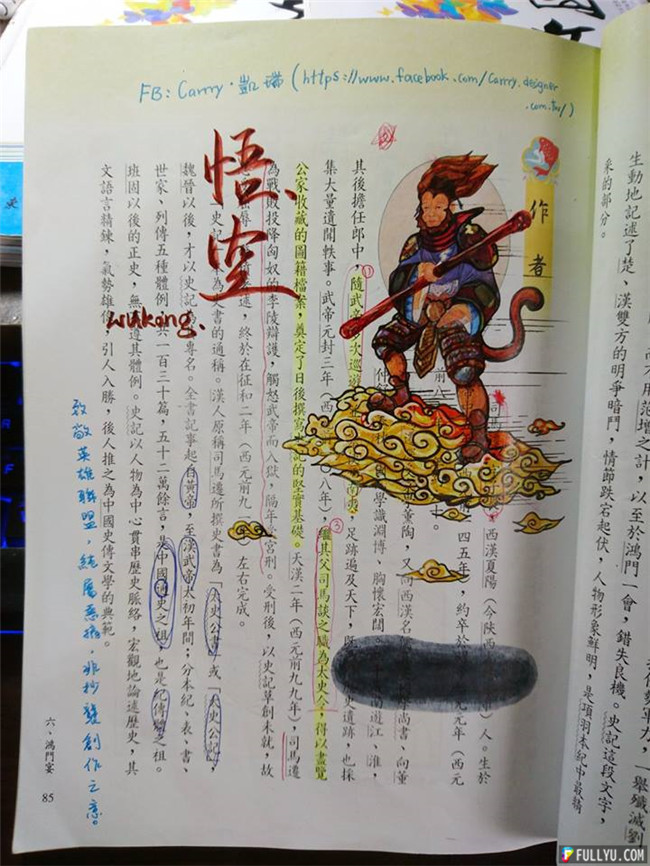 FB: Carrry.凱琳 (https://www.facebook.com/Carrry.designer
.com.tw/)
生動地記述了楚、漢雙方的明爭暗鬥，情節跌宕起伏，人物形象鮮明，是項羽本紀中最精
采的部分。
作者
司馬
西漢夏陽（今陝西
人。生於
前
四五年，約卒於
元年（西元
仲
董陶，又向西漢名
尚書、向董
學識淵博、胸懷宏闊
南遊江、淮，
其後擔任郎中，隨武帝
次巡遊
足跡遍及天下，
史遺跡，也採
集大量遺聞軼事。武帝元封三年（西
八年），繼其父司馬談之職為太史令，得以盡覽
公家收藏的圖籍檔案，奠定了日後撰寫
記的堅實基礎。天漢二年（西元前九九年），司馬遷
為戰敗投降匈奴的李陵辯護，觸怒武帝而入獄，
宮刑。受刑後，以史記草創未就，故
辱
述，終於在征和二年（西元前九
）左右完成。
史記
為史書的通稱。漢人原稱司馬遷所撰史書為「太史公書」或「太史公記」，
魏晉以後，才以史記為
專名。全書記事起自黃帝，至漢武帝太初年間；分本紀、表、書、
世家、列傳五種體例
共一百三十篇，五十二萬餘言，是中國
史之祖，也是紀傳體之祖。
班固以後的正史，無
遵其體例。史記以人物為中心貫串歷史脈絡，宏觀地論述歷史，其
文語言精鍊，氣勢雄偉
引人入勝，後人推之為中國史傳文學的典範。
悟空
wukong.
致敬英雄聯盟，純屬惡搞，非抄襲創作之意。
六、鴻門宴
85
之計，以至於鴻門一會，錯失良機。史記這段文字，
一舉殲滅劉
FULLYU.COM